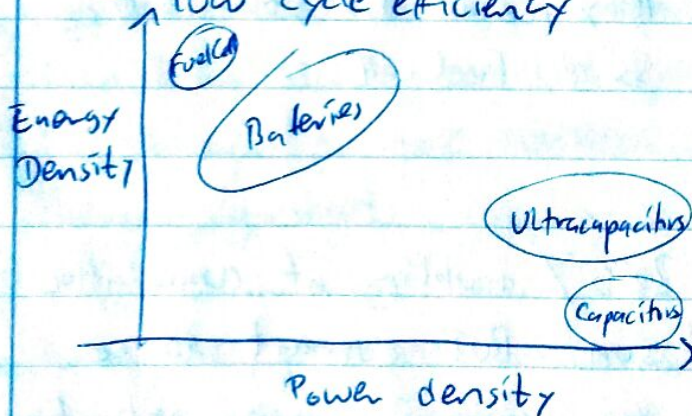 low cycle efficiency
Fuel Cell
Energy
Density
Bateries
Ultracapacitors
Capacitors
Power density